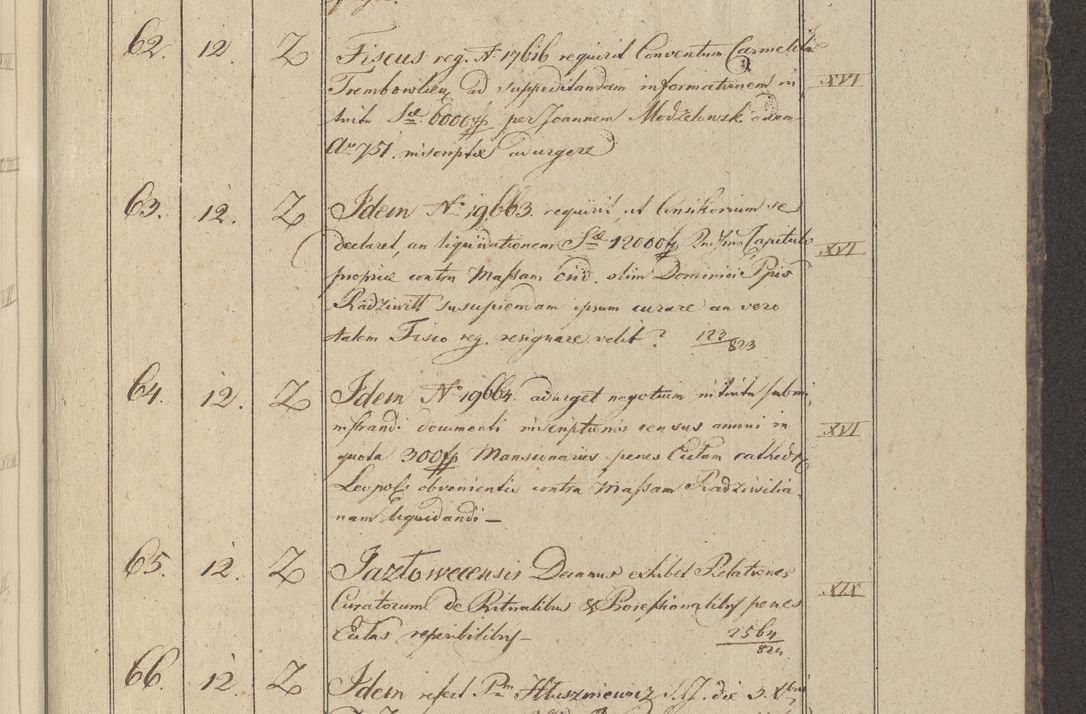 62. 12. Z Fiscus reg. N 17616 requirit Conventum Carmelit
Trembowlien ad suppeditandam informationem in XVI
tuitu Sae 6000 fp per Joannem Modzelewsk
Ao 751. inscriptae adurgere
63. 12. Z Idem No 19663. requirit, ut Consistorium se
declaret, an liquidationem Sae 12000 fp Capituli XVI
propriae contra Massam crid. olim Dominici Ppis
Radziwill susupiendam ipsum curare an vero
talem Fisco reg. resignare velit? 123/823
64. 12. Z Idem No 19664. adurget negotium intuitu subm
nistrandi documenti inscriptionis census annui in XVI
quota 300 fp Mansionariis penes Eclam cathedr
Leopol: obvenientis contra Massam Radziwilia
nam liquidandi —
65. 12. Z Jazlowecensis Decanus exhibet Relationes
Curatorum de Ritualibus & Processionalibus penes XIX
Eclas reperibilibus — 2564/824
66. 12 Z Idem refert Pm Hluszniewicz S.J. die 3. Xbris